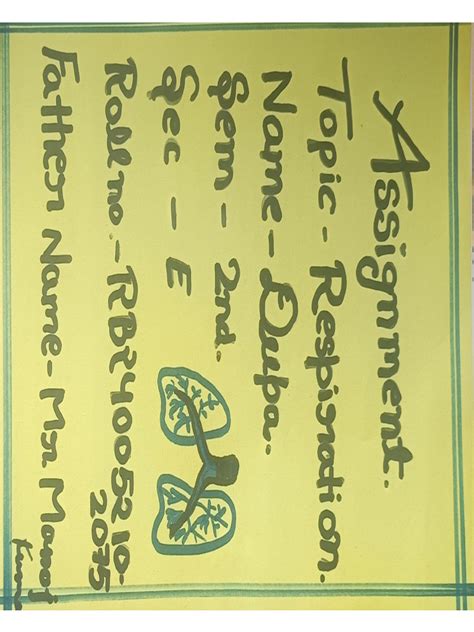 Assignment.
Topic - Respiration.
Name - Dupa.
Sem - 2nd.
Sec - E
Roll no. - RB24005210-
2075
Father Name - Mr. Manoj
Kumar